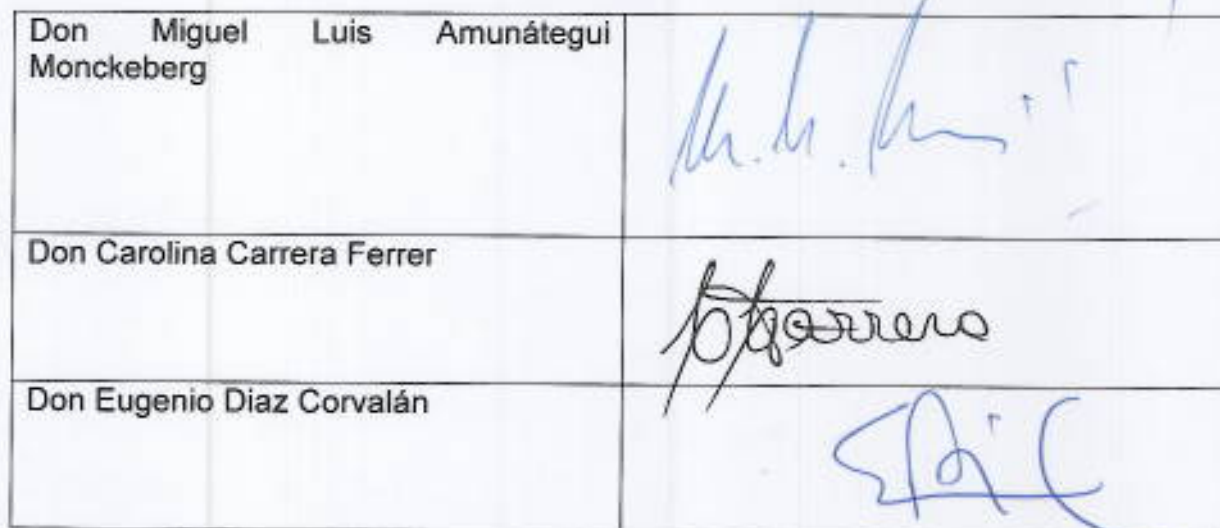 Don Miguel Luis Amunátegui
Monckeberg
Don Carolina Carrera Ferrer
Don Eugenio Diaz Corvalán